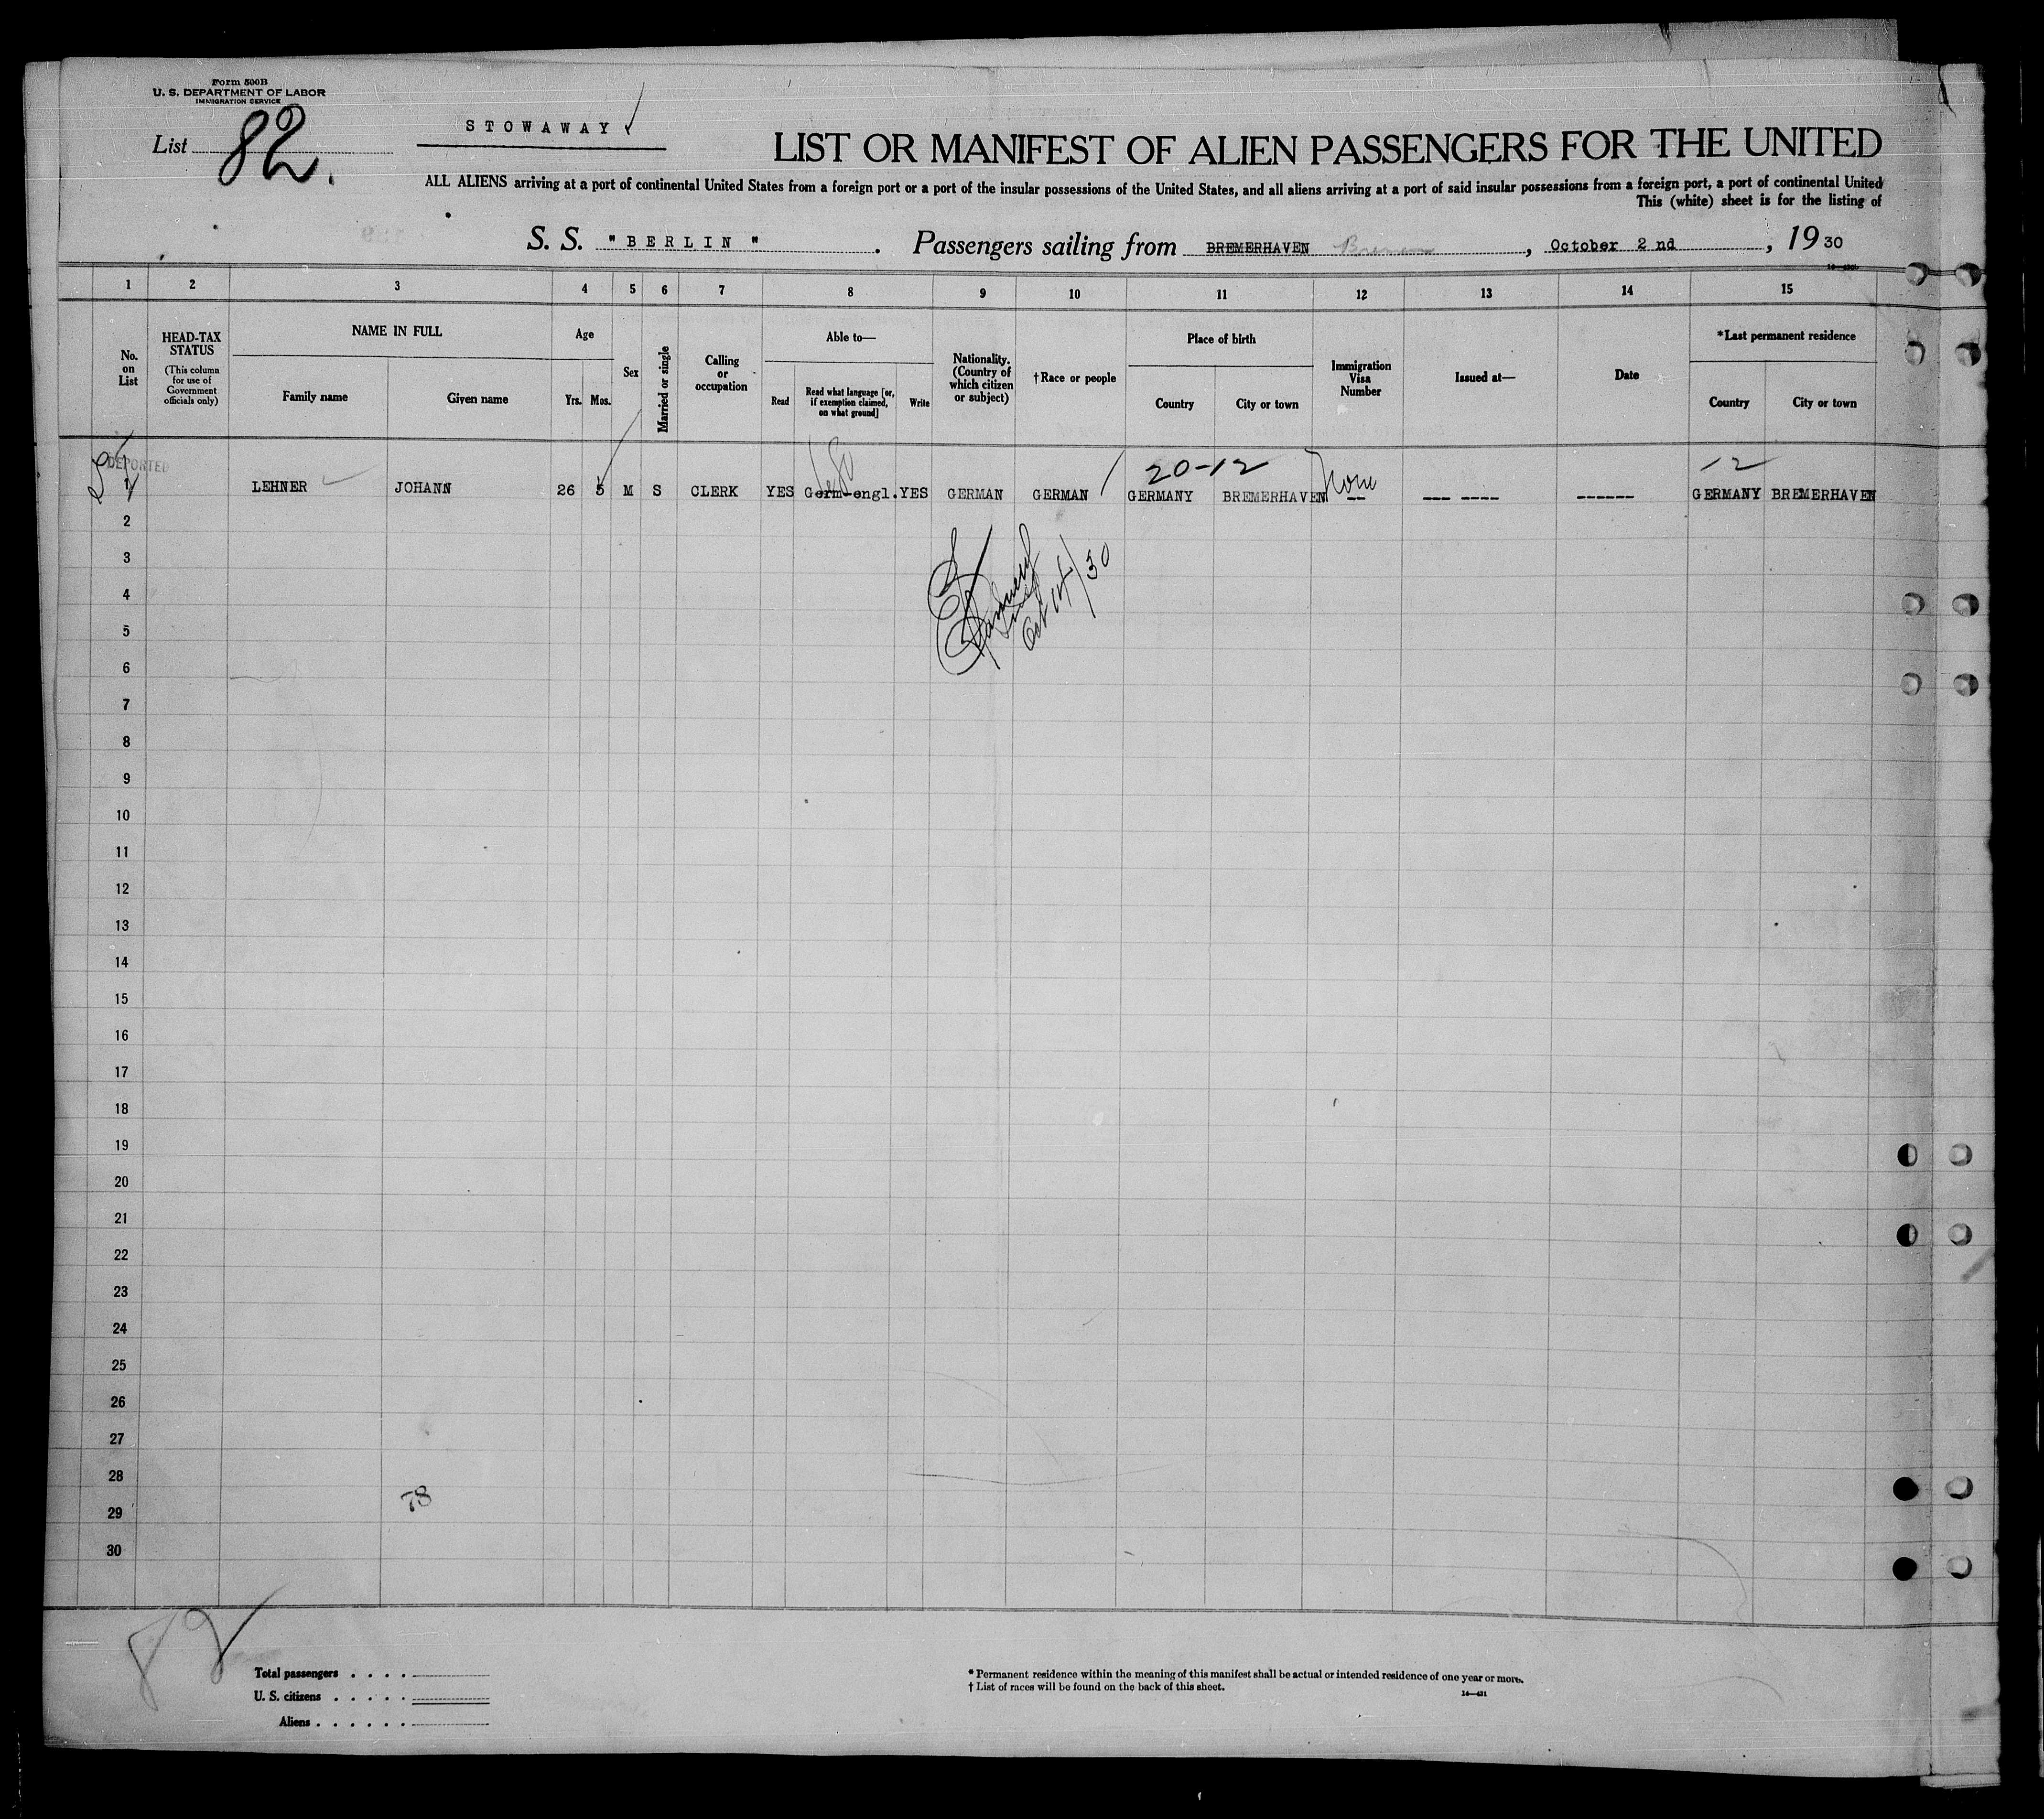 Form 500B
U. S. DEPARTMENT OF LABOR
IMMIGRATION SERVICE
List 82.
STOWAWAY
LIST OR MANIFEST OF ALIEN PASSENGERS FOR THE UNITED
ALL ALIENS arriving at a port of continental United States from a foreign port or a port of the insular possessions of the United States, and all aliens arriving at a port of said insular possessions from a foreign port, a port of continental United
This (white) sheet is for the listing of
S. S. "BERLIN". Passengers sailing from BREMERHAVEN Bremen, October 2 nd, 19 30
1 2 3 4 5 6 7 8 9 10 11 12 13 14 15
No. on List
HEAD-TAX STATUS
(This column for use of Government officials only)
NAME IN FULL
Family name
Given name
Age
Yrs. Mos.
Sex
Married or single
Calling or occupation
Able to—
Read
Read what language [or, if exemption claimed, on what ground]
Write
Nationality. (Country of which citizen or subject)
†Race or people
Place of birth
Country
City or town
Immigration Visa Number
Issued at—
Date
*Last permanent residence
Country
City or town
DEPORTED
20-12
12
1 LEHNER JOHANN 26 5 M S CLERK YES Germ-engl. YES GERMAN GERMAN GERMANY BREMERHAVEN None -- --- ---- ------ GERMANY BREMERHAVEN
2
3
4
Oct 14/30
5
6
7
8
9
10
11
12
13
14
15
16
17
18
19
20
21
22
23
24
25
26
27
28
78
29
30
Total passengers . . . .
U. S. citizens . . . . .
Aliens . . . . . .
* Permanent residence within the meaning of this manifest shall be actual or intended residence of one year or more.
† List of races will be found on the back of this sheet.
14—421